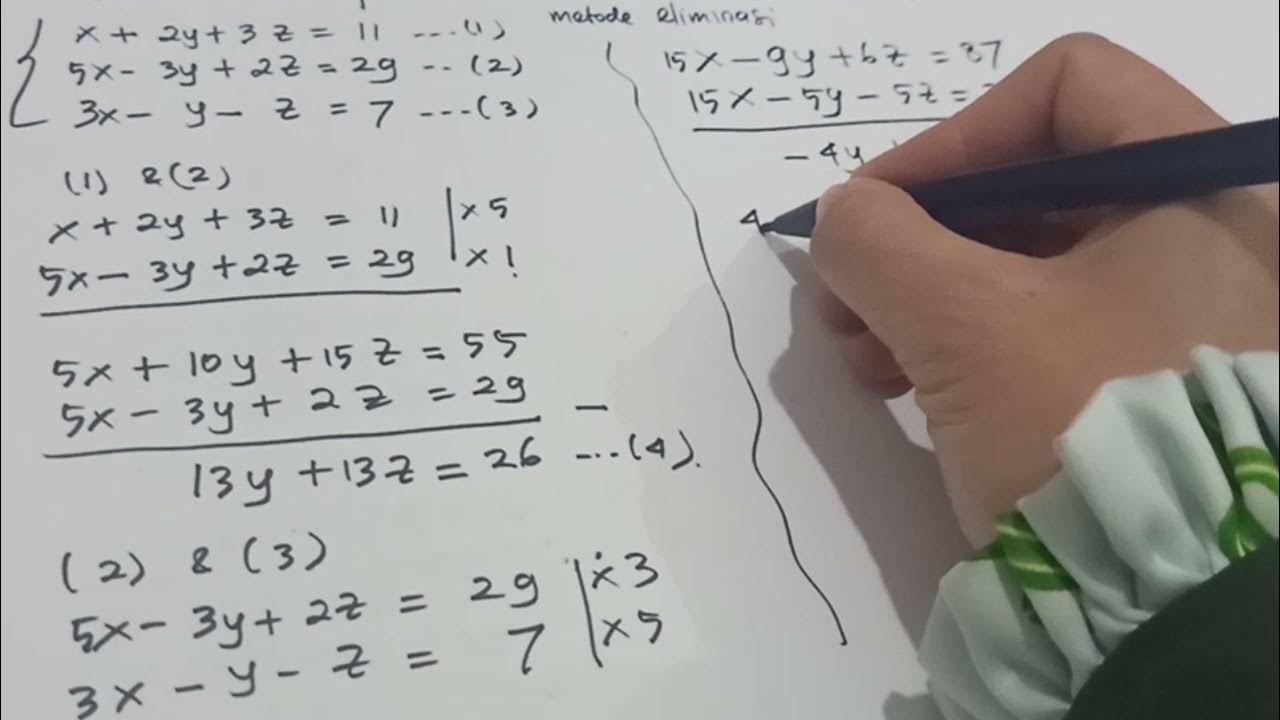 metode eliminasi
x + 2y + 3z = 11 ---(1)
5x - 3y + 2z = 29 -- (2)
3x - y - z = 7 ---(3)
(1) & (2)
x + 2y + 3z = 11 | x 5
5x - 3y + 2z = 29 | x 1
5x + 10y + 15z = 55
5x - 3y + 2z = 29 -
13y + 13z = 26 ---(4).
(2) & (3)
5x - 3y + 2z = 29 | x 3
3x - y - z = 7 | x 5
15x - 9y + 6z = 87
15x - 5y - 5z =
- 4y
4